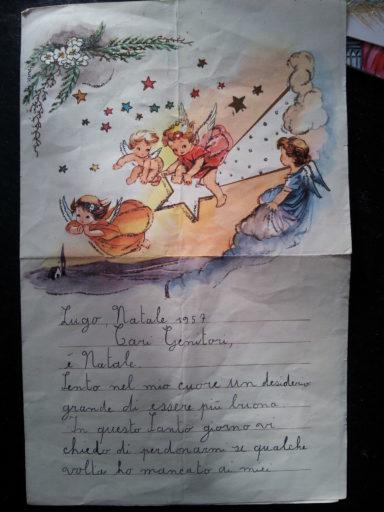 Lugo, Natale 1957
Cari Genitori,
è Natale.
Sento nel mio cuore un desiderio
grande di essere più buona.
In questo Santo giorno vi
chiedo di perdonarmi se qualche
volta ho mancato ai miei